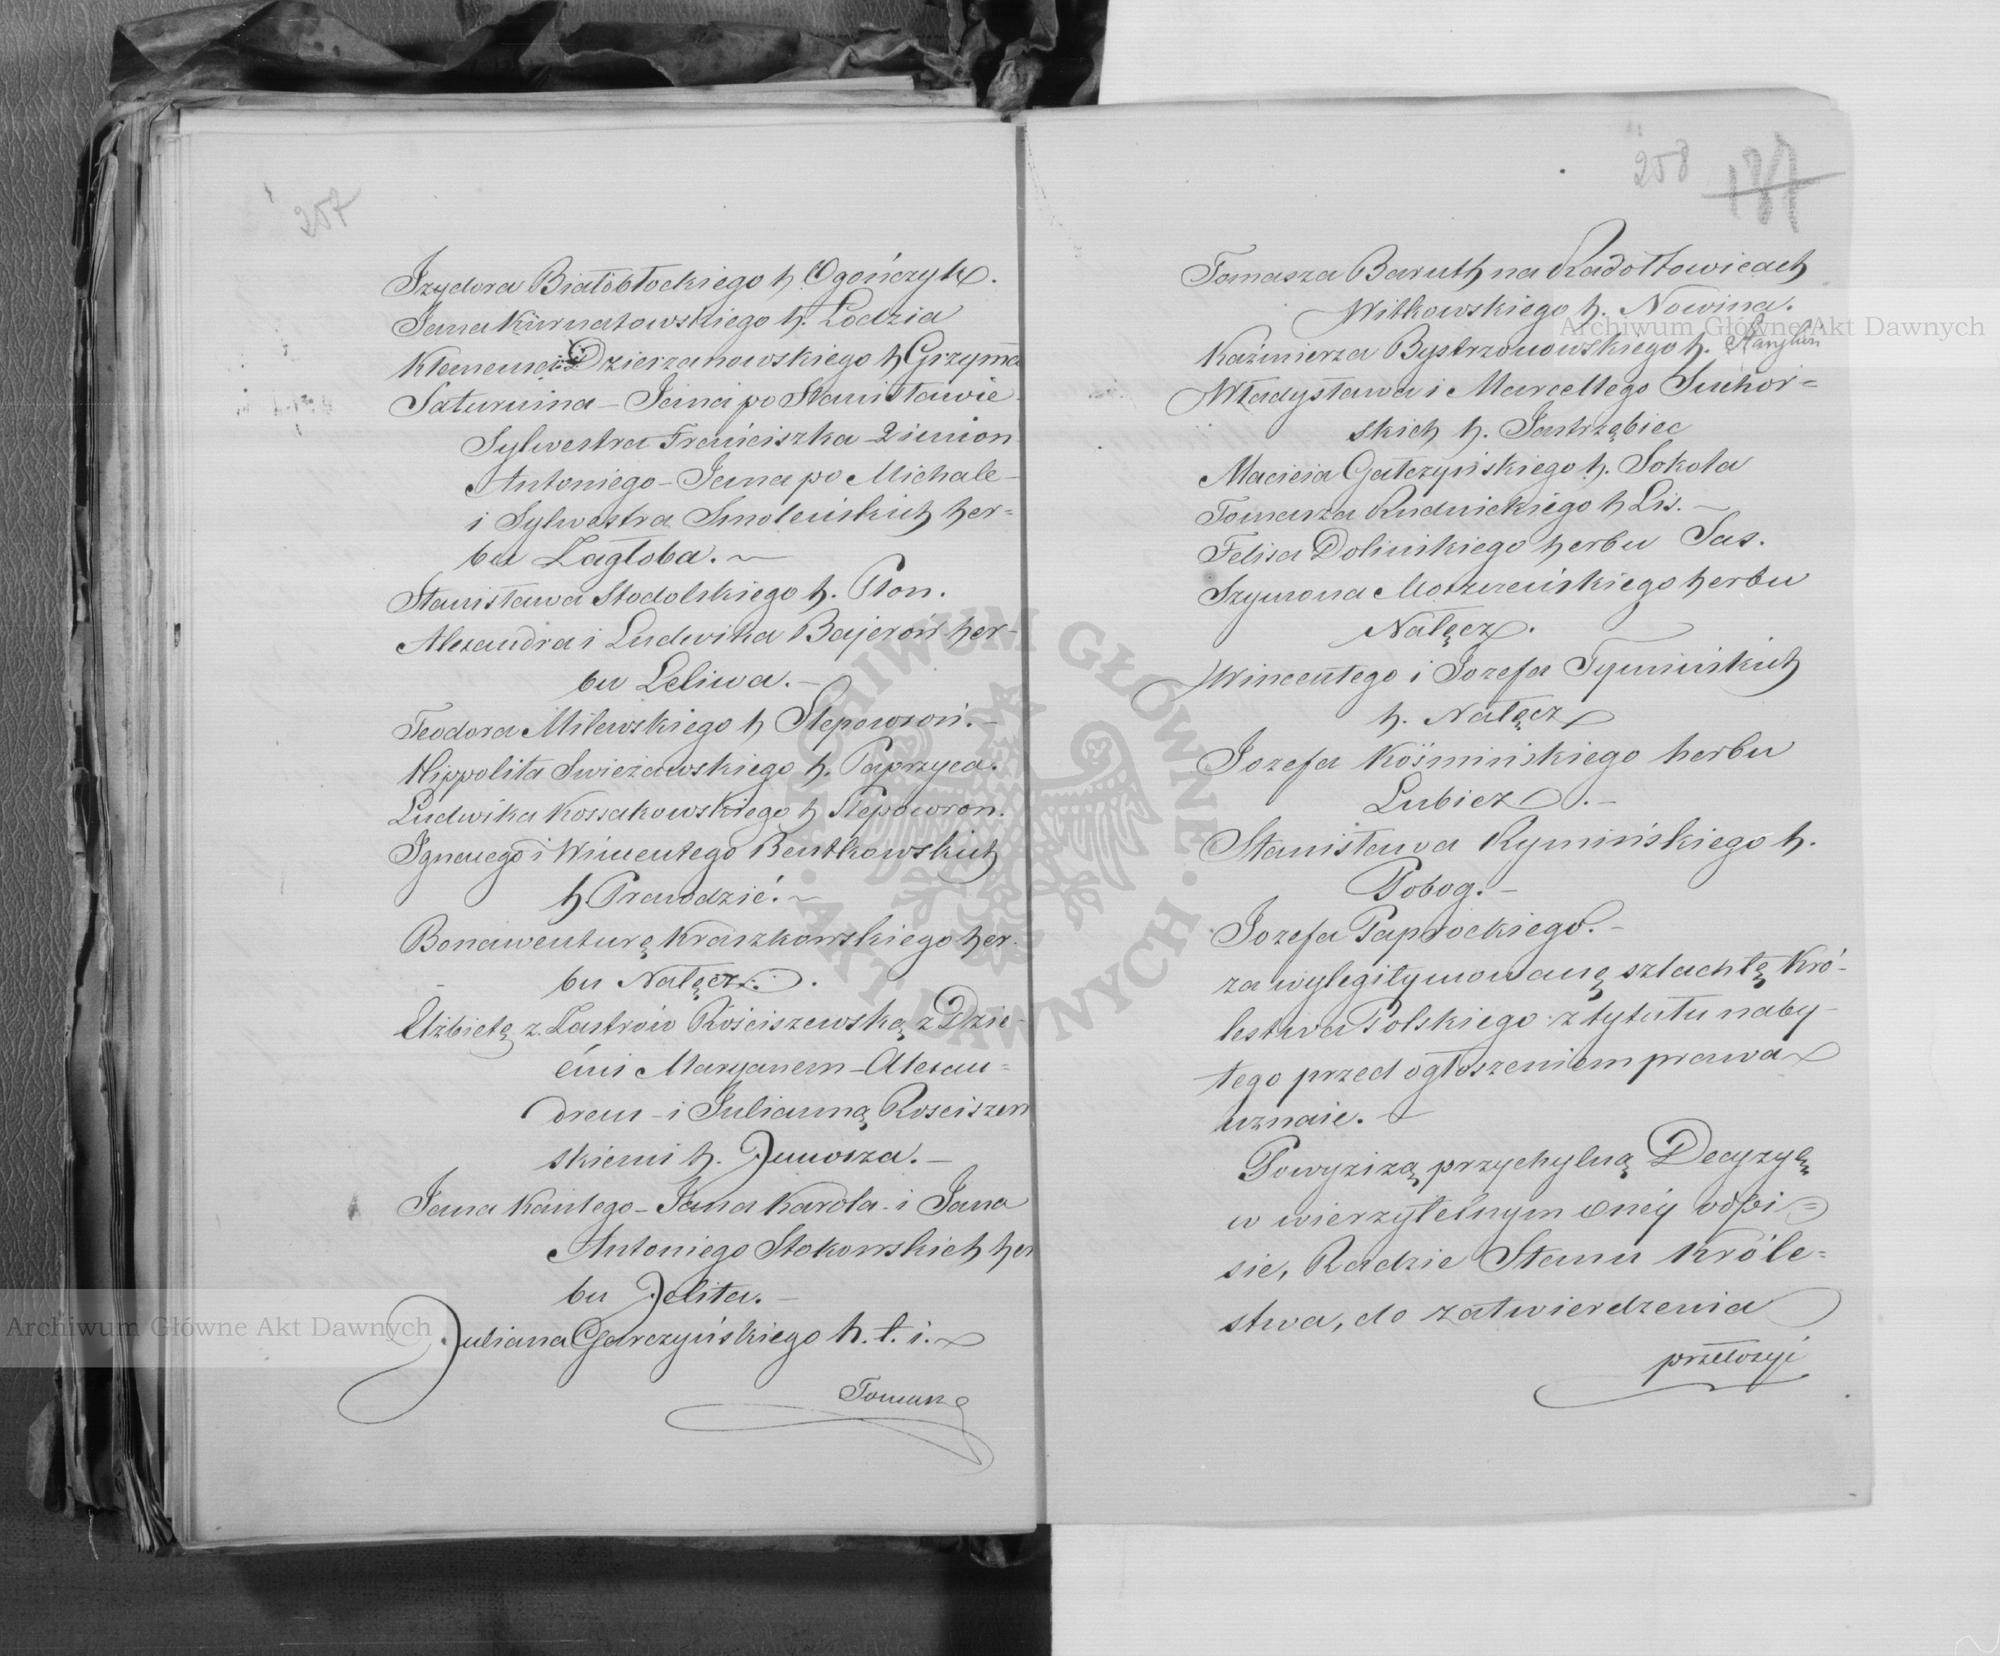 207
Izydora Białobłockiego h. Ogończyk.
Jana Kurnatowskiego h. Lodzia
Klemensa Dzierzanowskiego h Grzyma
Saturnina – Jana po Stanisławie –
Sylwestra Franciszka 2 imion
Antoniego – Jana po Michale –
i Sylwestra Smoleńskich her=
bu Zagłoba. –
Stanisława Stodolskiego h. Płon.
Alexandra i Ludwika Bajerów her-
bu Leliwa. –
Teodora Milewskiego h Slepowron. –
Hippolita Swieżawskiego h. Paprzyca.
Ludwika Kossakowskiego h Slepowron.
Ignacego i Wincentego Bentkowskich
h Prawdzić. –
Bonawenturę Kraszkowskiego her-
bu Nałęcz.
Elżbietę z Zastrów Rościszewską z Dzie-
ćmi Maryanem – Alexan=
drem – i Julianną Rosciszew
skiemi h. Junosza. –
Jana Kantego – Jana Karola – i Jana
Antoniego Stokowskich her
bu Jelita. –
Juliana Garczyńskiego h. t. i.
Tomasza
208 187
Tomasza Baruth na Radołtowicach
Witkowskiego h. Nowina.
Kaźmierza Bystrzonowskiego h.
Władysława i Marcellego Suchor=
skich h. Jastrzębiec
Macieia Gałczyńskiego h. Sokola
Tomasza Rudnickiego h Lis. –
Felixa Dolińskiego herbu Sas.
Szymona Moszzeńskiego herbu
Nałęcz.
Wincentego i Jozefa Tymińskich
h. Nałęcz
Jozefa Kośmińskiego herbu
Lubicz. –
Stanisława Rymińskiego h.
Pobog. –
Jozefa Paprockiego. –
za wylegitymowaną szlachtę Kró-
lestwa Polskiego z tytułu naby-
tego przed ogłoszeniem prawa
uznaie. –
Powyzizą przychylną Decyzyę
w wierzytelnym oney odpi=
sie, Radzie Stanu Króle=
stwa, do zatwierdzenia
przełożyć
Archiwum Główne Akt Dawnych
Archiwum Główne Akt Dawnych
ARCHIWUM GŁÓWNE · AKT DAWNYCH ·